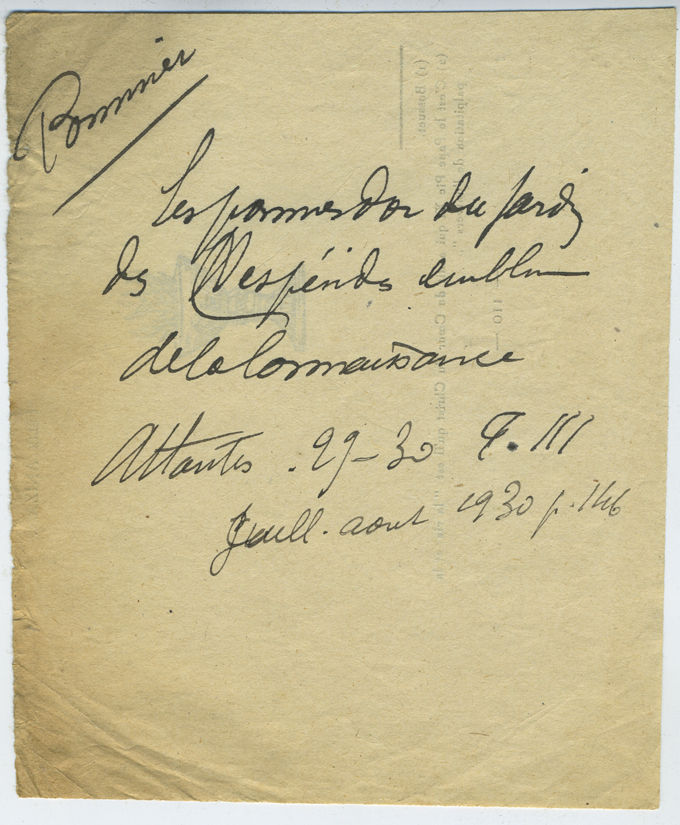 Pommier
Les pommes d'or du Jardin
des Hespérides emblème
de la Connaissance
Atlantis . 29-30 T. III
Juill. aout 1930 p. 146
— 110 —
(1) Bossuet.